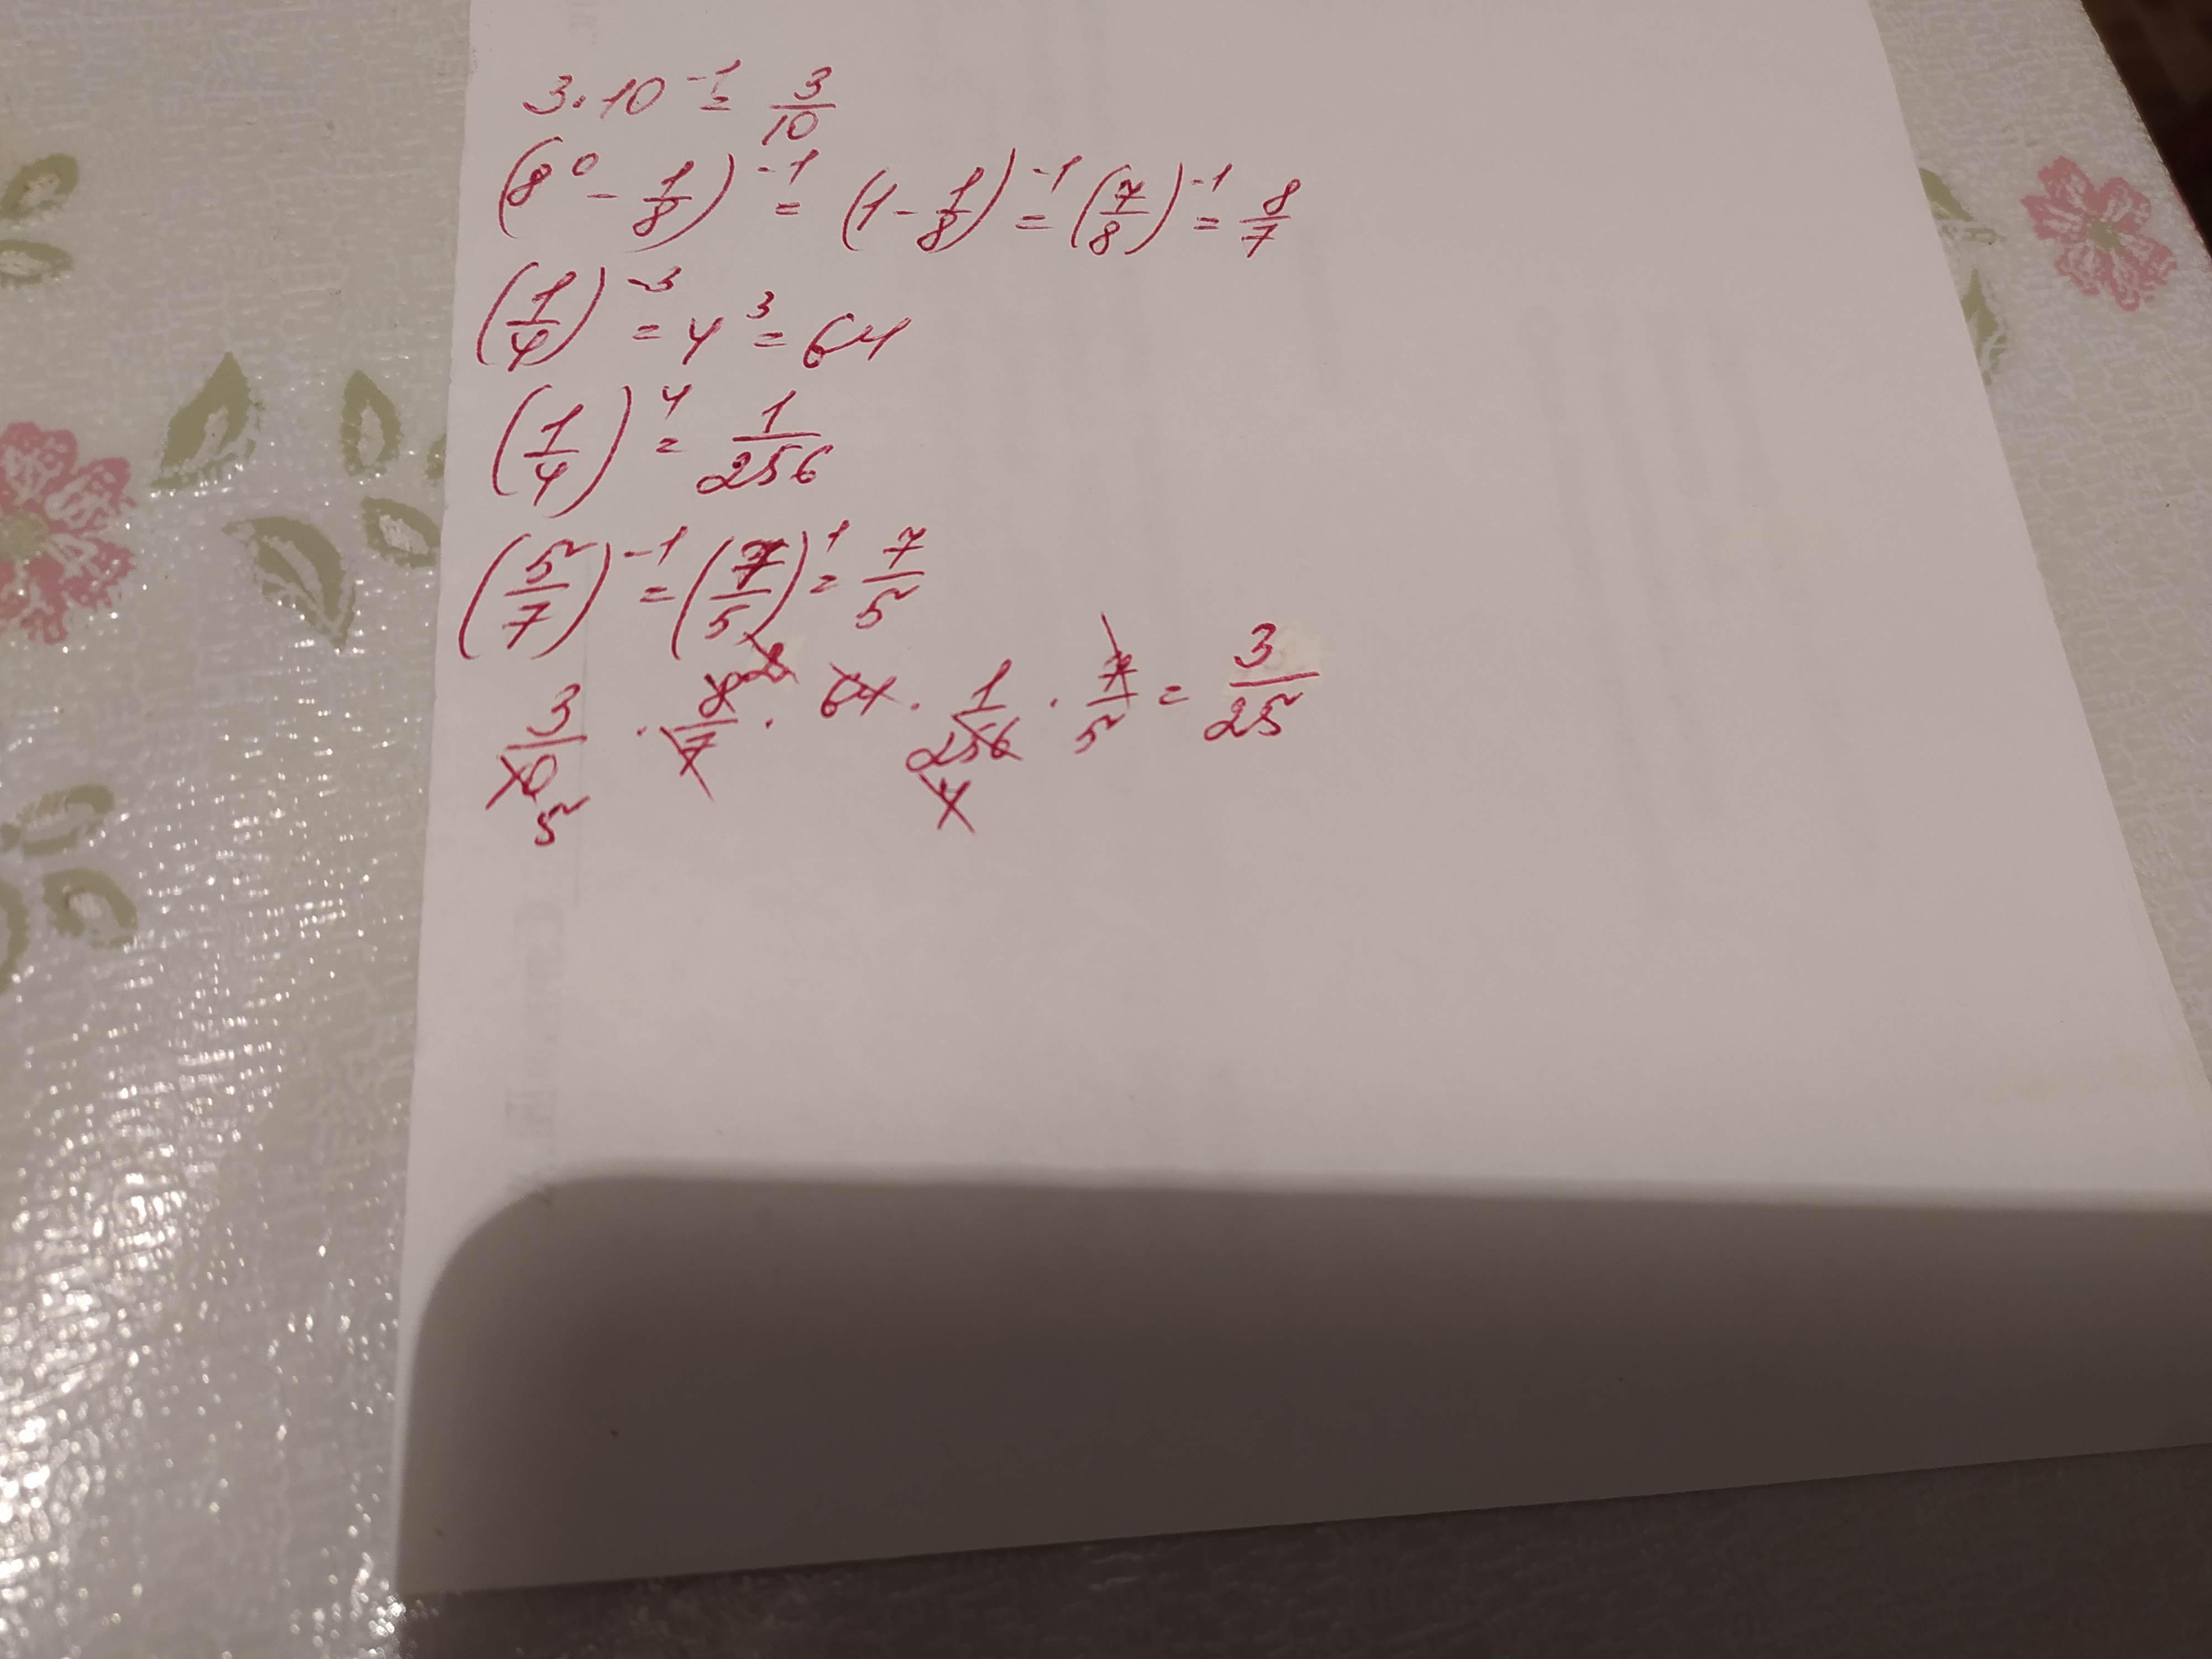 3·10⁻¹ = 3/10
(8⁰ - 1/8)⁻¹ = (1 - 1/8)⁻¹ = (7/8)⁻¹ = 8/7
(1/4)⁻³ = 4³ = 64
(1/4)⁴ = 1/256
(5/7)⁻¹ = (7/5)¹ = 7/5
3/10 · 8/7 · 64 · 1/256 · 7/5 = 3/25
5 2 4